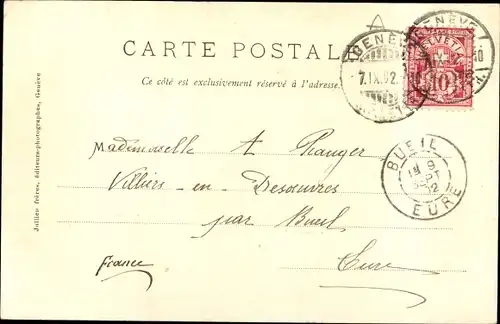 CARTE POSTALE
Ce côté est exclusivement réservé à l'adresse.
GENÈVE
7.IX.02.
GENÈVE
HELVETIA
10
Mademoiselle A Ranger
Villiers-en-Desœuvres
par Bueil
Eure
France
BUEIL
9
SEPT
02
EURE
Jullien frères, éditeurs-photographes, Genève